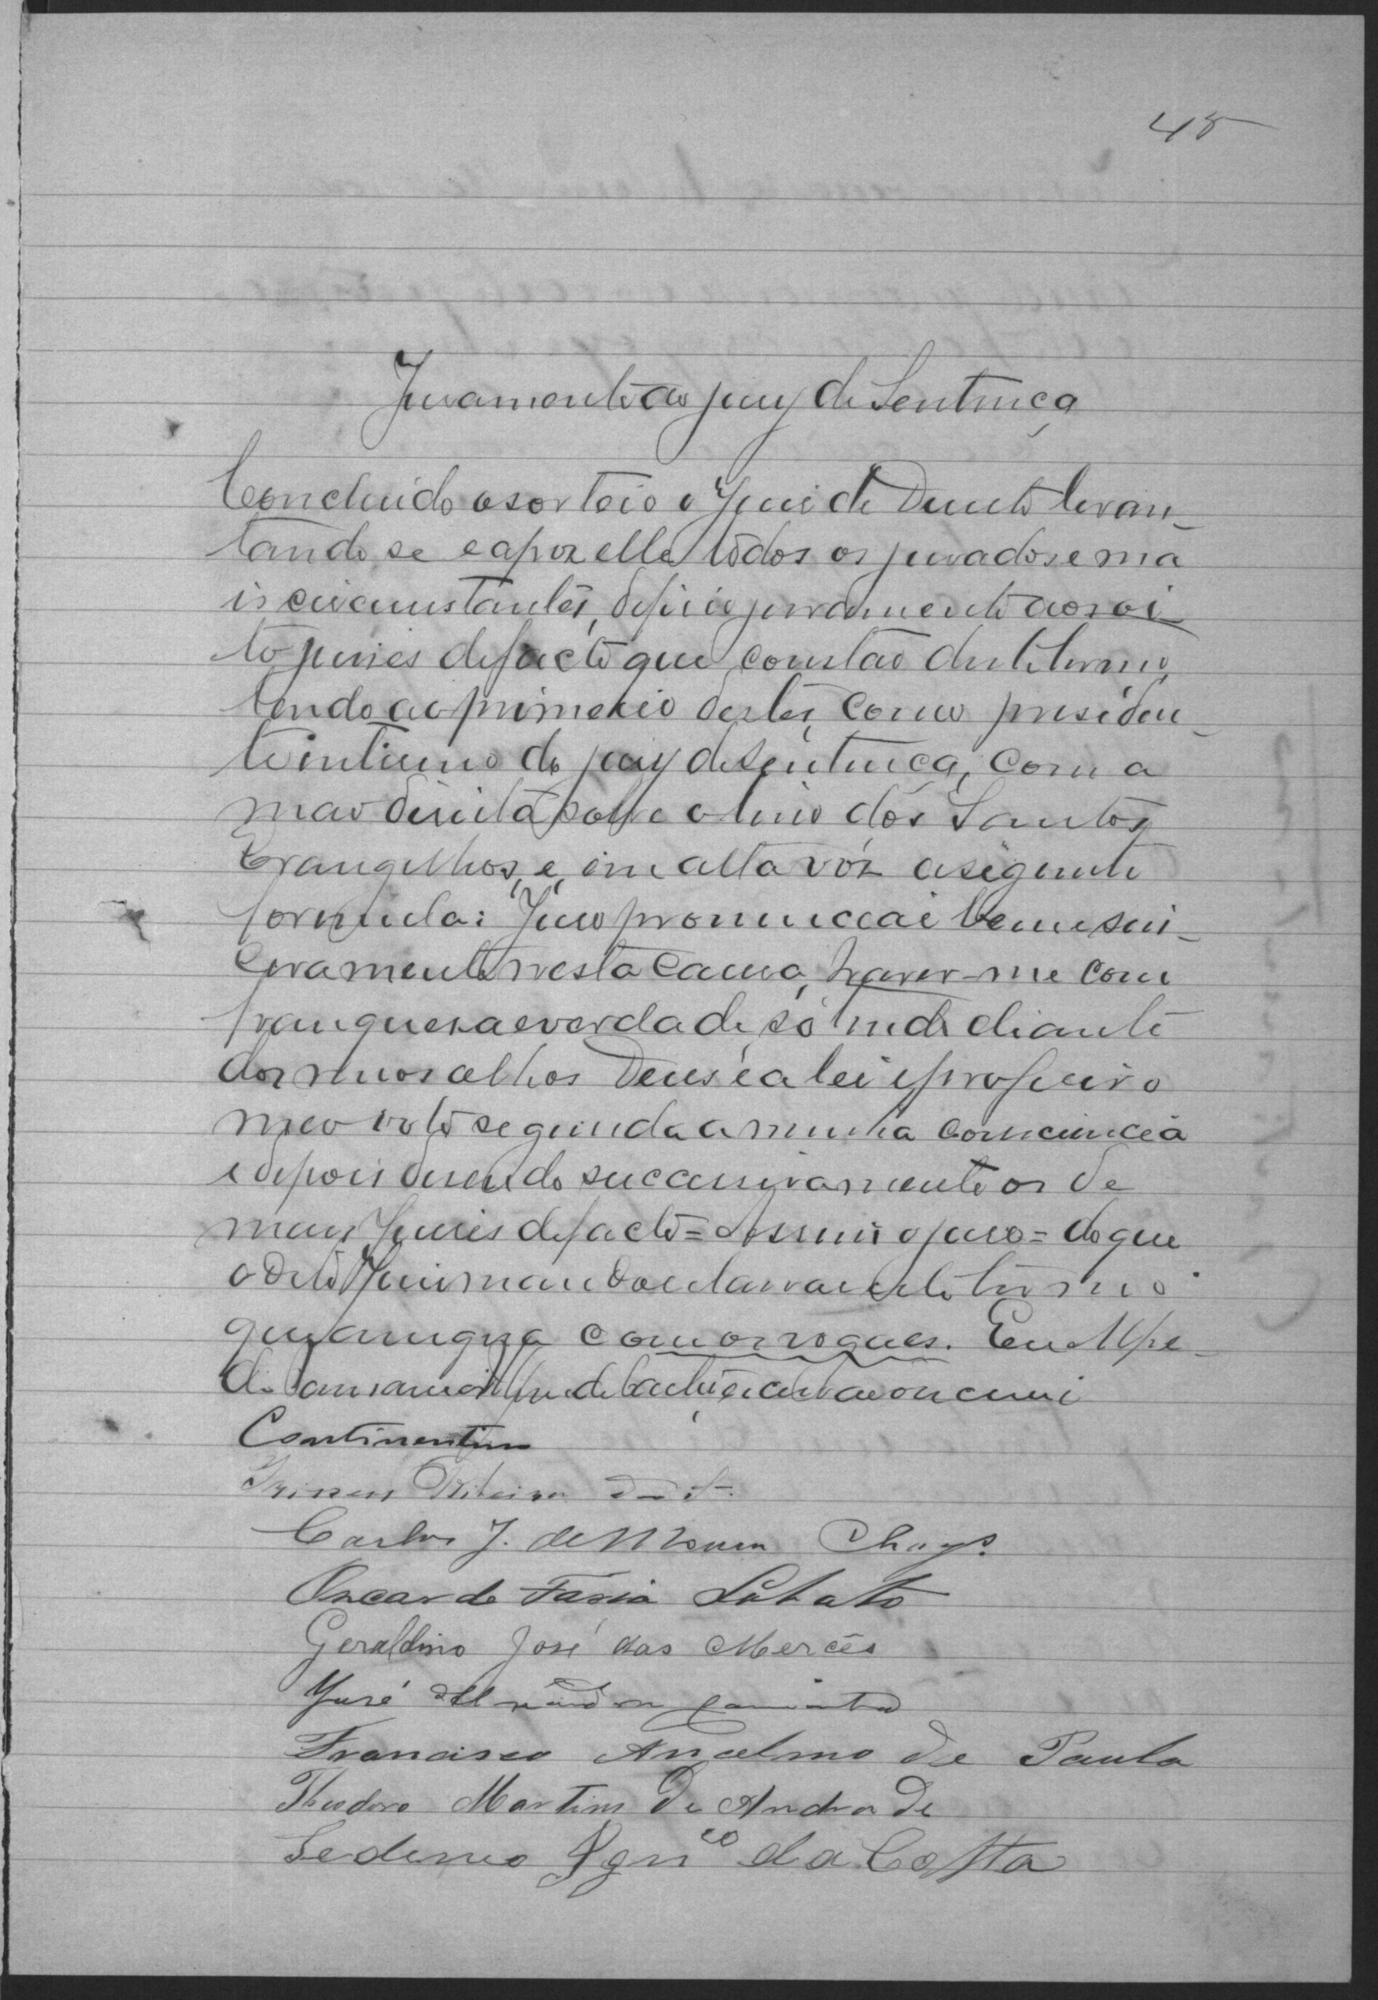 48
Juramento ao jury de Sentença
Concluido o sorteio o Juiz de Direito levan-
tando se e apoz elle todos os jurados e ma
is circumstantes, deferio juramento aos oi-
to juizes de facto que constão deste termo,
lendo ao primeiro destes, como presiden-
te interino do jury de Sentença, com a
mao direita sobre o livro dos Santos
Evangelhos, e, em alta vóz a seguinte
formula: Juro pronunciar bem e sin-
ceramente nesta causa, haver-me com
franquesa e verdade, só tendo diante
dos meus olhos Deus e a lei e proferir o
meo voto segundo a minha consciencia
e depois disendo successivamente os de
mais Juizes de facto = Assim o juro = do que
o dito Juiz mandou lavrar este termo
que assigna com os vogaes. Eu
escrivão o escrevi
Continentino
Ribeiro
Carlos J. de Moura Chagas
Oscar de Faria Lobato
Geraldino José das Mercês
José
Francisco Ancelmo de Paula
Theodoro Martins de Andrade
Ign^co da Costa